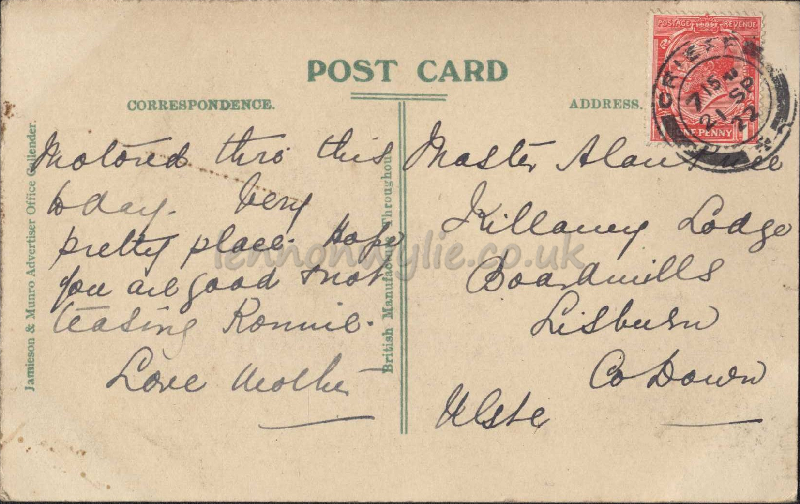 POST CARD
CORRESPONDENCE.
ADDRESS.
Motored thro this
today. Very
pretty place. Hope
you are good & not
teasing Ronnie.
Love Mother
Master Alan
Killaney Lodge
Boardmills
Lisburn
Co Down
Ulste
POSTAGE REVENUE
PENNY
CRIEFF
7 15 P
21 SP
22
Jamieson & Munro Advertiser Office Callender.
British Manufacture Throughout
lennonwylie.co.uk